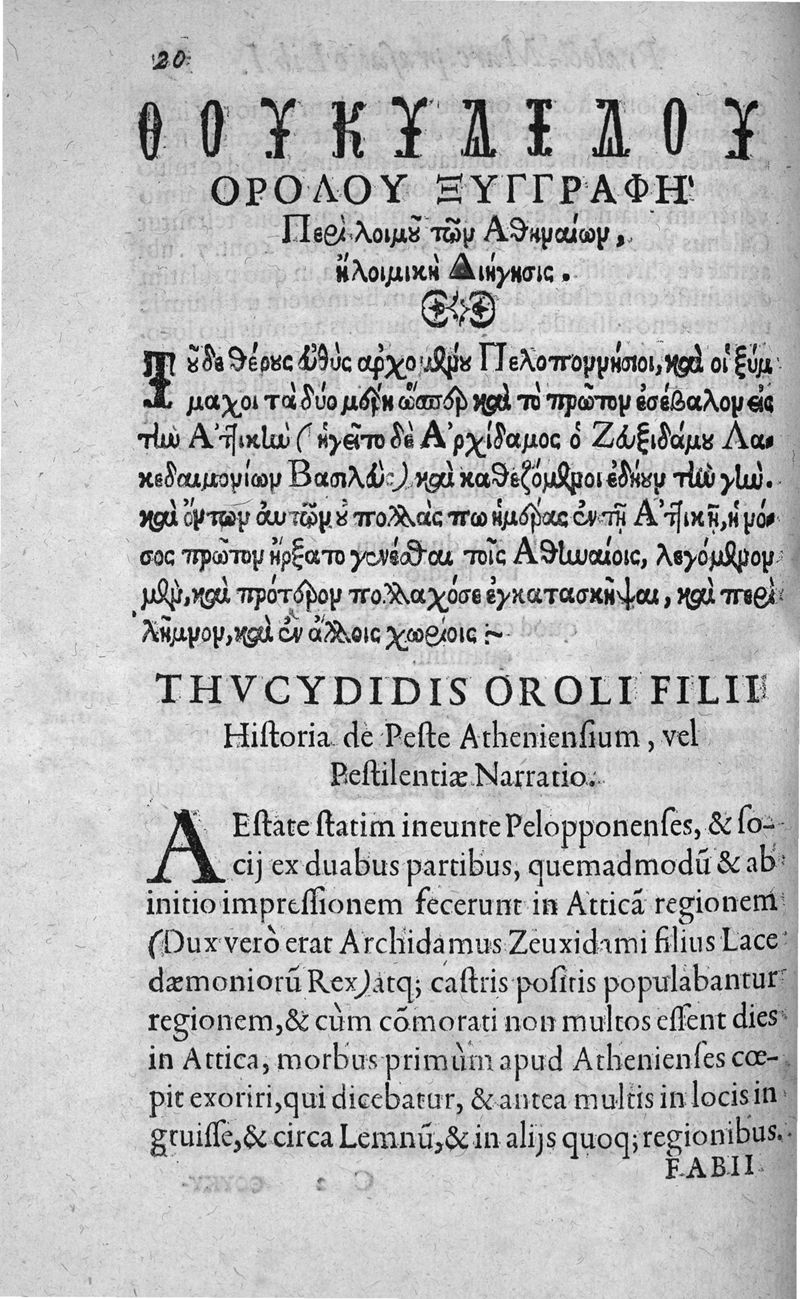 20
ΘΟΥΚΥΔΙΔΟΥ
ΟΡΟΛΟΥ ΞΥΓΓΡΑΦΗ'
Περὶ λοιμοῦ τῶν Αθηναίων,
ἢ λοιμικὴ Διήγησις.
Τοῦ δε θέρους ἐυθὺς αρχομένου Πελοποννήσιοι, καὶ οἱ ξύμ
μαχοι τὰ δύο μέρη ὥσπερ καὶ τὸ πρῶτον ἐσέβαλον εἰς
τὴν Ατ]ικὴν (ἡγεῖτο δὲ Αρχίδαμος ὁ Ζευξιδάμου Λα-
κεδαιμονίων Βασιλεὺς) καὶ καθεζόμενοι ἐδῄουν τὴν γῆν.
καὶ ὄντων ἀυτῶν ȣ πολλάς πω ἡμέρας ἐν τῇ Ατ]ικῇ, ἡ νό-
σος πρῶτον ἤρξατο γενέσθαι τοῖς Αθηναίοις, λεγόμενον
μὲν, καὶ πρότερον πολλαχόσε ἐγκατασκῆψαι, καὶ περὶ
λῆμνον, καὶ ἐν ἄλλοις χωρίοις :~
THVCYDIDIS OROLI FILII
Hiſtoria de Peſte Athenienſium, vel
Peſtilentiæ Narratio.
AEſtate ſtatim ineunte Pelopponenſes, & ſo-
cij ex duabus partibus, quemadmodũ & ab
initio impreſſionem fecerunt in Atticã regionem
(Dux verò erat Archidamus Zeuxidami filius Lace
dæmoniorũ Rex) atq; caſtris poſitis populabantur
regionem, & cùm cõmorati non multos eſſent dies
in Attica, morbus primùm apud Athenienſes cœ-
pit exoriri, qui dicebatur, & antea multis in locis in
gruiſſe, & circa Lemnũ, & in alijs quoq; regionibus.
FABII